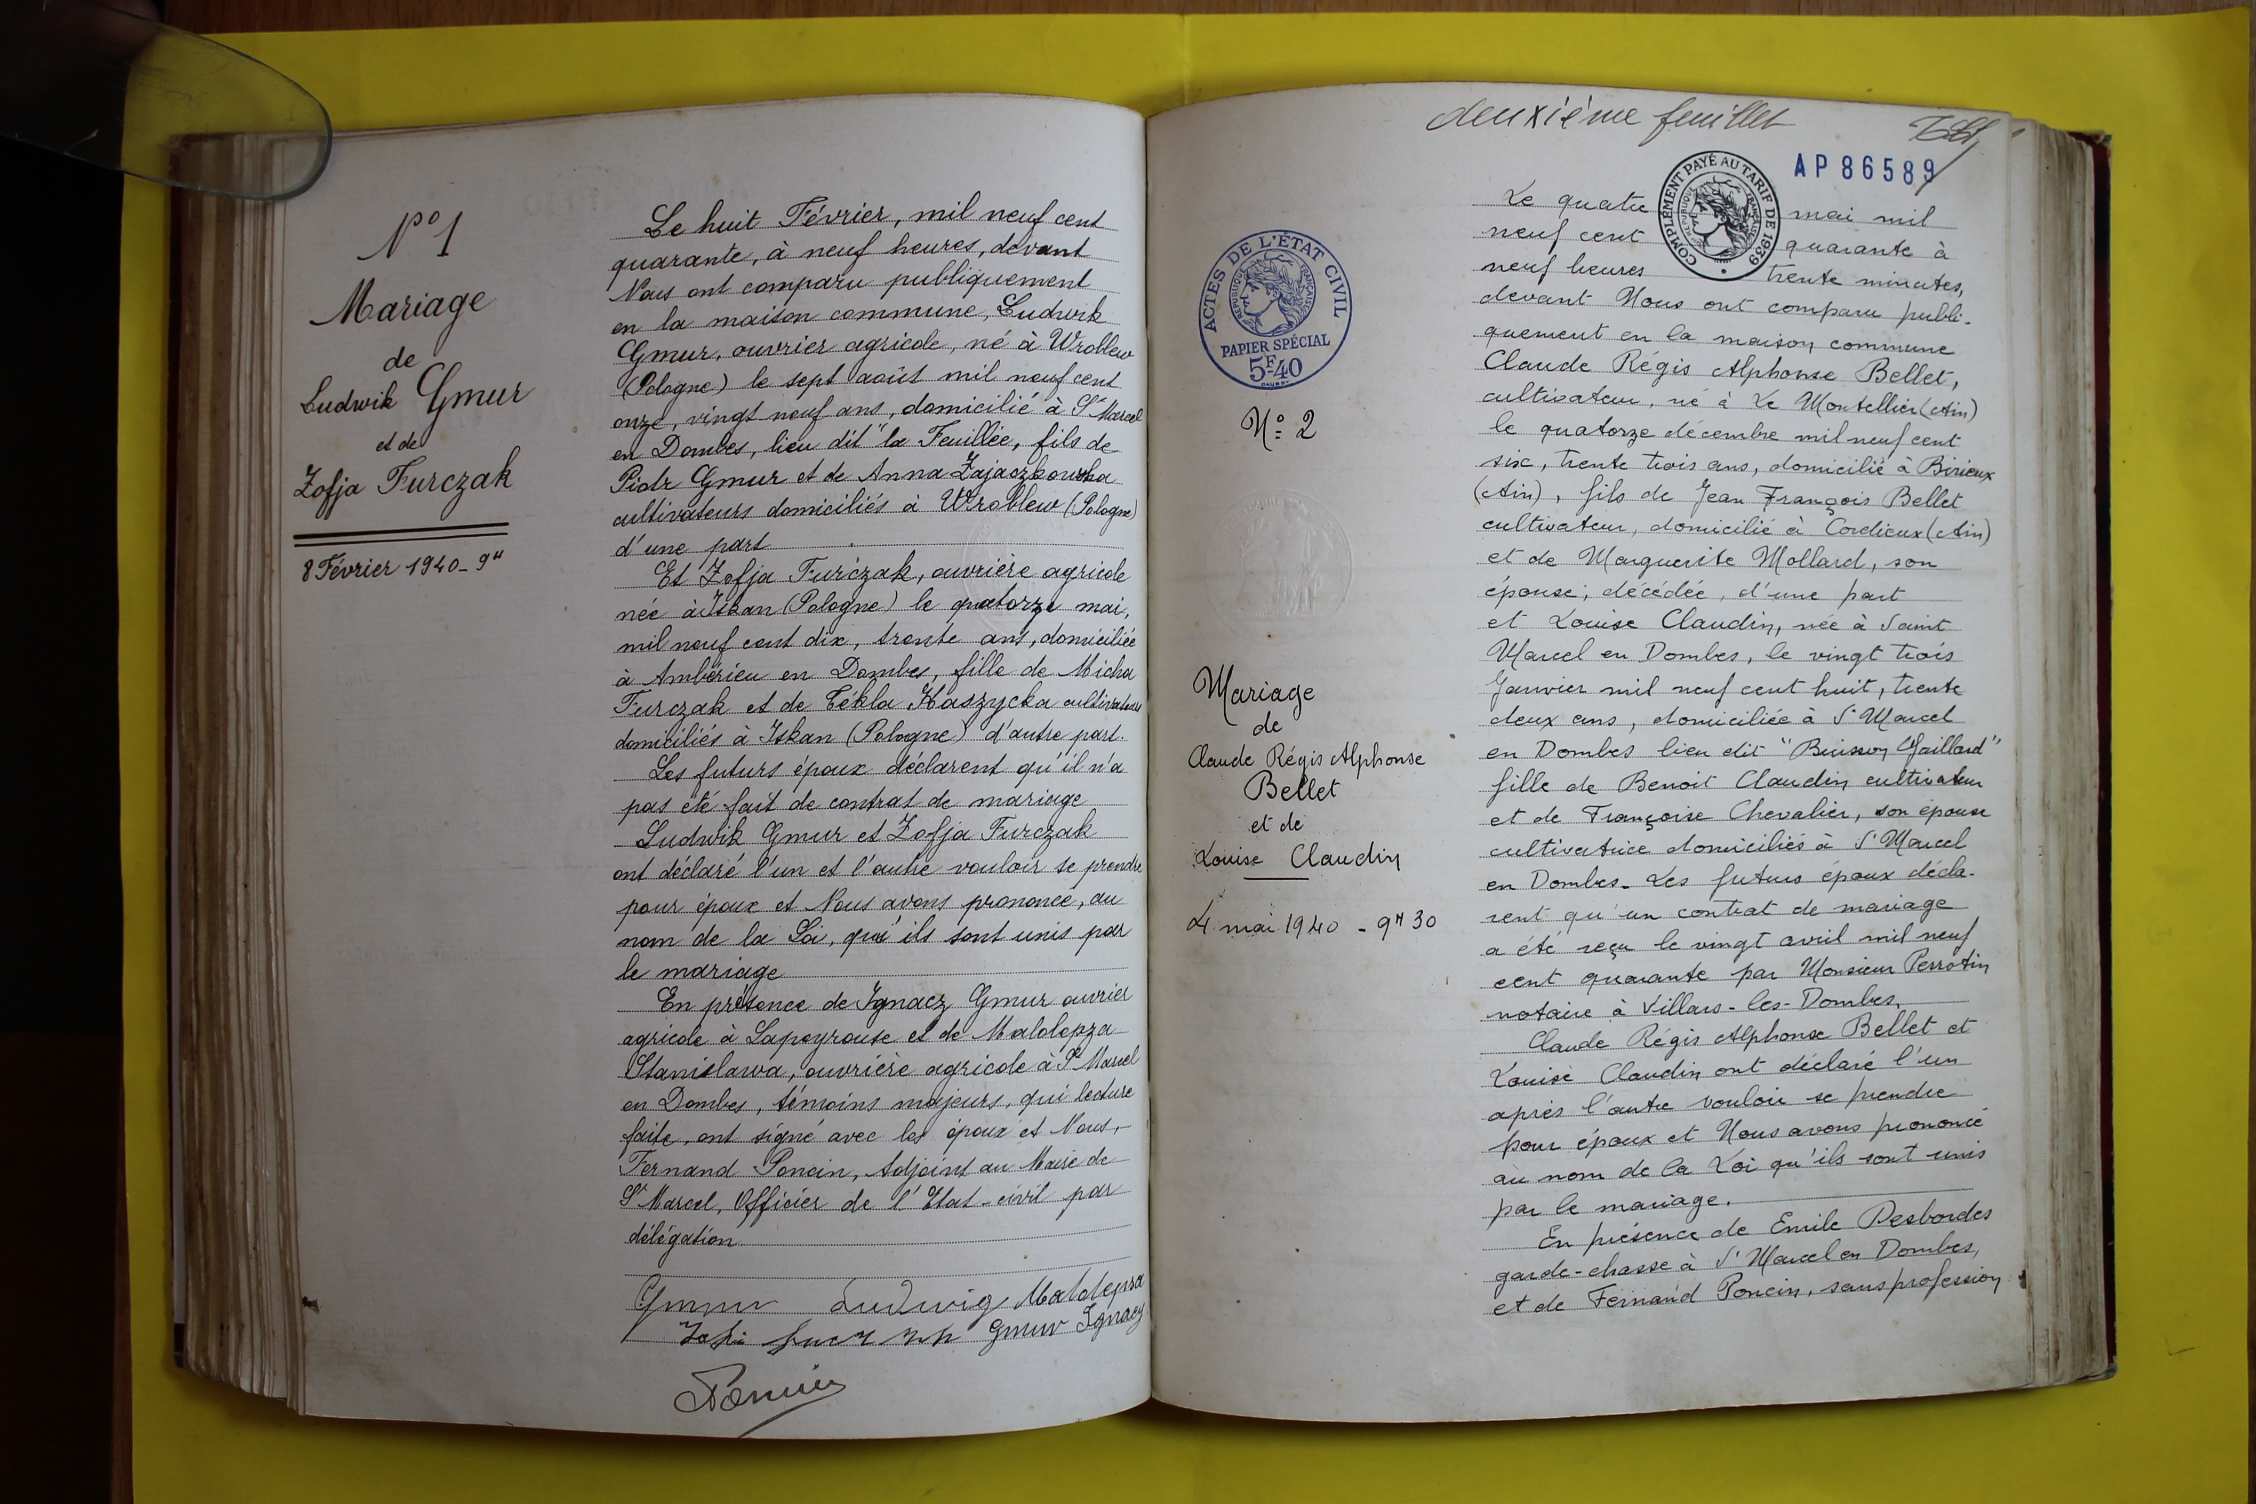 N° 1
Mariage
de
Ludwik Gmur
et de
Zofja Furczak
8 Février 1940 - 9H
Le huit Février, mil neuf cent
quarante, à neuf heures, devant
Nous ont comparu publiquement
en la maison commune, Ludwik
Gmur, ouvrier agricole, né à Wroblew
(Pologne) le sept août mil neuf cent
onze, vingt neuf ans, domicilié à St Marcel
en Dombes, lieu dit "la Feuillée, fils de
Piotr Gmur et de Anna Zajaczkowska
cultivateurs domiciliés à Wroblew (Pologne)
d'une part
Et Zofja Furczak, ouvrière agricole
née à Iskan (Pologne) le quatorze mai,
mil neuf cent dix, trente ans, domiciliée
à Ambérieu en Dombes, fille de Micha
Furczak et de Tékla Haszycka cultivateurs
domiciliés à Iskan (Pologne) d'autre part.
Les futurs époux déclarent qu'il n'a
pas été fait de contrat de mariage
Ludwik Gmur et Zofja Furczak
ont déclaré l'un et l'autre vouloir se prendre
pour époux et Nous avons prononcé, au
nom de la Loi, qu'ils sont unis par
le mariage
En présence de Ignacz Gmur ouvrier
agricole à Lapeyrouse et de Malolepza
Stanislawa, ouvrière agricole à St Marcel
en Dombes, témoins majeurs, qui lecture
faite, ont signé avec les époux et Nous,
Fernand Poncin, Adjoint au Maire de
St Marcel, Officier de l'Etat-civil par
délégation
Gmur Ludwig Malolepsza
Gmur Ignacy
Poncin
deuxième feuillet
AP 86589
COMPLÉMENT PAYÉ AU TARIF DE 1939
RÉPUBLIQUE FRANÇAISE
ACTES DE L'ÉTAT CIVIL
RÉPUBLIQUE FRANÇAISE
PAPIER SPÉCIAL
5F40
N° 2
Mariage
de
Claude Régis Alphonse
Bellet
et de
Louise Claudin
4 mai 1940 - 9H 30
Le quatre mai mil
neuf cent quarante à
neuf heures trente minutes,
devant Nous ont comparu publi-
quement en la maison commune
Claude Régis Alphonse Bellet,
cultivateur, né à Le Montellier (Ain)
le quatorze décembre mil neuf cent
six, trente trois ans, domicilié à Birieux
(Ain), fils de Jean François Bellet
cultivateur, domicilié à Cordieux (Ain)
et de Marguerite Mollard, son
épouse, décédée, d'une part
et Louise Claudin, née à Saint
Marcel en Dombes, le vingt trois
Janvier mil neuf cent huit, trente
deux ans, domiciliée à St Marcel
en Dombes lieu dit "Buisson Gaillard"
fille de Benoit Claudin cultivateur
et de Françoise Chevalier, son épouse
cultivatrice domiciliés à St Marcel
en Dombes. Les futurs époux décla-
rent qu'un contrat de mariage
a été reçu le vingt avril mil neuf
cent quarante par Monsieur Perrotin
notaire à Villars-les-Dombes.
Claude Régis Alphonse Bellet et
Louise Claudin ont déclaré l'un
après l'autre vouloir se prendre
pour époux et Nous avons prononcé
au nom de la Loi qu'ils sont unis
par le mariage.
En présence de Emile Desbordes
garde-chasse à St Marcel en Dombes,
et de Fernand Poncin, sans profession